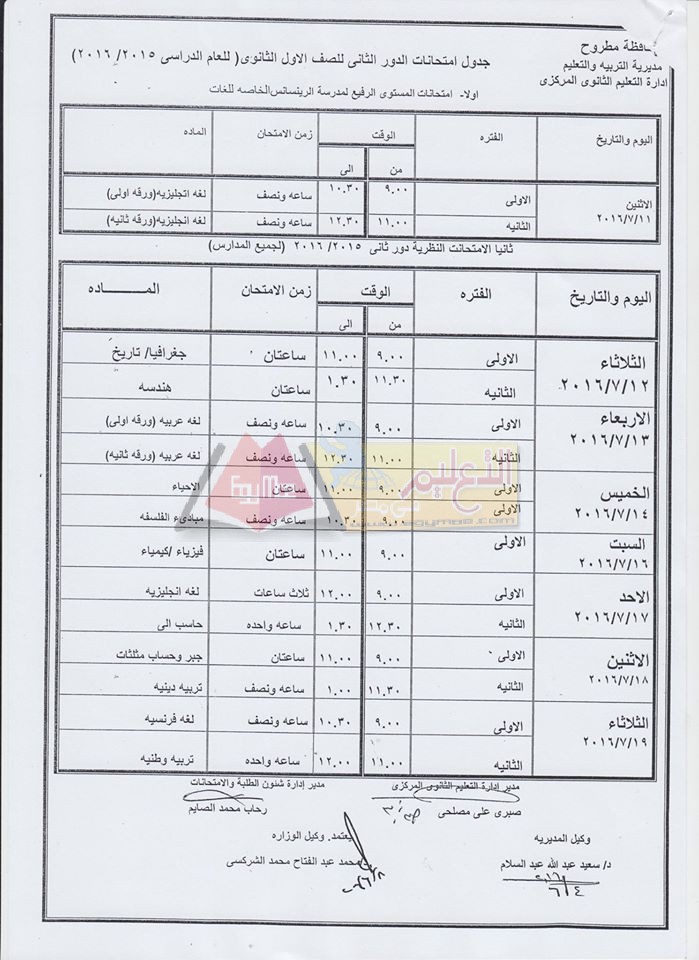 محافظة مطروح
مديرية التربيه والتعليم
ادارة التعليم الثانوى المركزى
جدول امتحانات الدور الثانى للصف الاول الثانوى( للعام الدراسى ٢٠١٥/ ٢٠١٦)
اولا- امتحانات المستوى الرفيع لمدرسة الرينسانس الخاصه للغات
اليوم والتاريخ الفتره الوقت زمن الامتحان الماده
من الى
الاثنين ٢٠١٦/٧/١١ الاولى ٩.٠٠ ١٠.٣٠ ساعه ونصف لغه انجليزيه(ورقه اولى)
الثانيه ١١.٠٠ ١٢.٣٠ ساعه ونصف لغه انجليزيه(ورقه ثانيه)
ثانيا الامتحانت النظرية دور ثانى ٢٠١٥/ ٢٠١٦ (لجميع المدارس)
اليوم والتاريخ الفتره الوقت زمن الامتحان المــــــاده
من الى
الثلاثاء ٢٠١٦/٧/١٢ الاولى ٩.٠٠ ١١.٠٠ ساعتان جغرافيا/ تاريخ
الثانيه ١١.٣٠ ١.٣٠ ساعتان هندسه
الاربعاء ٢٠١٦/٧/١٣ الاولى ٩.٠٠ ١٠.٣٠ ساعه ونصف لغه عربيه (ورقه اولى)
الثانيه ١١.٠٠ ١٢.٣٠ ساعه ونصف لغه عربيه (ورقه ثانيه)
الخميس ٢٠١٦/٧/١٤ الاولى ٩.٠٠ ١١.٠٠ ساعتان الاحياء
الاولى ٩.٠٠ ١٠.٣٠ ساعه ونصف مبادىء الفلسفه
السبت ٢٠١٦/٧/١٦ الاولى ٩.٠٠ ١١.٠٠ ساعتان فيزياء /كيمياء
الاحد ٢٠١٦/٧/١٧ الاولى ٩.٠٠ ١٢.٠٠ ثلاث ساعات لغه انجليزيه
الثانيه ١٢.٣٠ ١.٣٠ ساعه واحده حاسب الى
الاثنين ٢٠١٦/٧/١٨ الاولى ٩.٠٠ ١١.٠٠ ساعتان جبر وحساب مثلثات
الثانيه ١١.٣٠ ١.٠٠ ساعه ونصف تربيه دينيه
الثلاثاء ٢٠١٦/٧/١٩ الاولى ٩.٠٠ ١٠.٣٠ ساعه ونصف لغه فرنسيه
الثانيه ١١.٠٠ ١٢.٠٠ ساعه واحده تربيه وطنيه
التعليم فى مصر
www.egymoe.com
EgyMoe
مدير إدارة التعليم الثانوى المركزى
صبرى على مصلحى
مدير إدارة شئون الطلبة والامتحانات
رحاب محمد الصايم
وكيل المديريه
د/ سعيد عبد الله عبد السلام
يعتمد. وكيل الوزاره
محمد عبد الفتاح محمد الشركسى